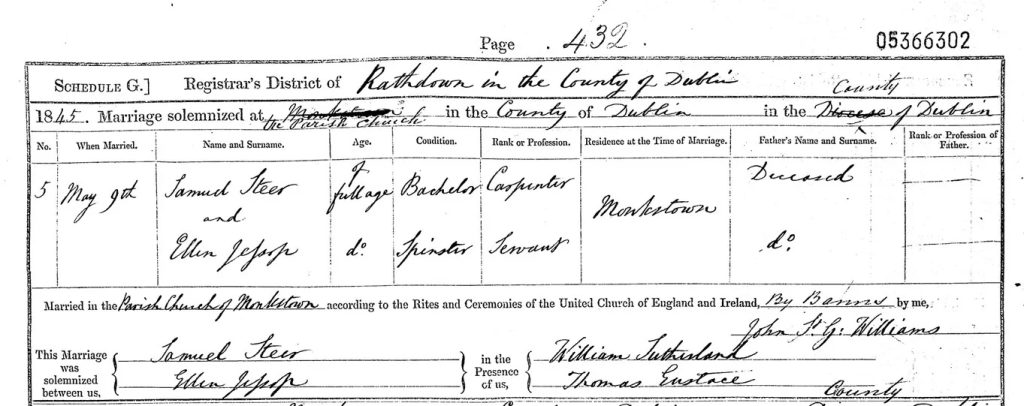 Page 432. 05366302
SCHEDULE G.] Registrar's District of Rathdown in the County of Dublin
County
1845. Marriage solemnized at Monkstown the Parish Church in the County of Dublin in the Diocese of Dublin
No. When Married. Name and Surname. Age. Condition. Rank or Profession. Residence at the Time of Marriage. Father's Name and Surname. Rank or Profession of Father.
5 May 9th Samuel Steer of full age Bachelor Carpenter Deceased
and Monkstown
Ellen Jessop do. Spinster Servant do.
Married in the Parish Church of Monkstown according to the Rites and Ceremonies of the United Church of England and Ireland, By Banns by me,
John St. G. Williams
This Marriage was solemnized between us, Samuel Steer in the Presence of us, William Sutherland
Ellen Jessop Thomas Eustace
County